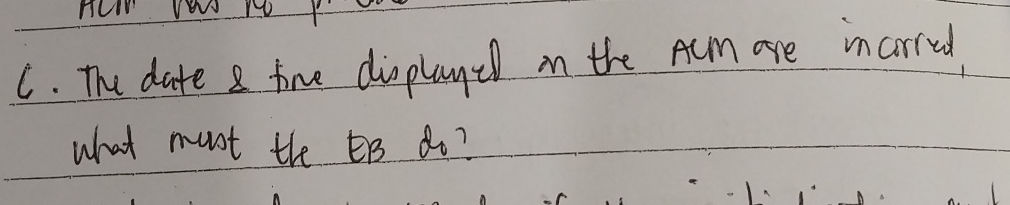 ACM has no
C. The date & time displayed on the ACM are incorrect,
What must the EB do?